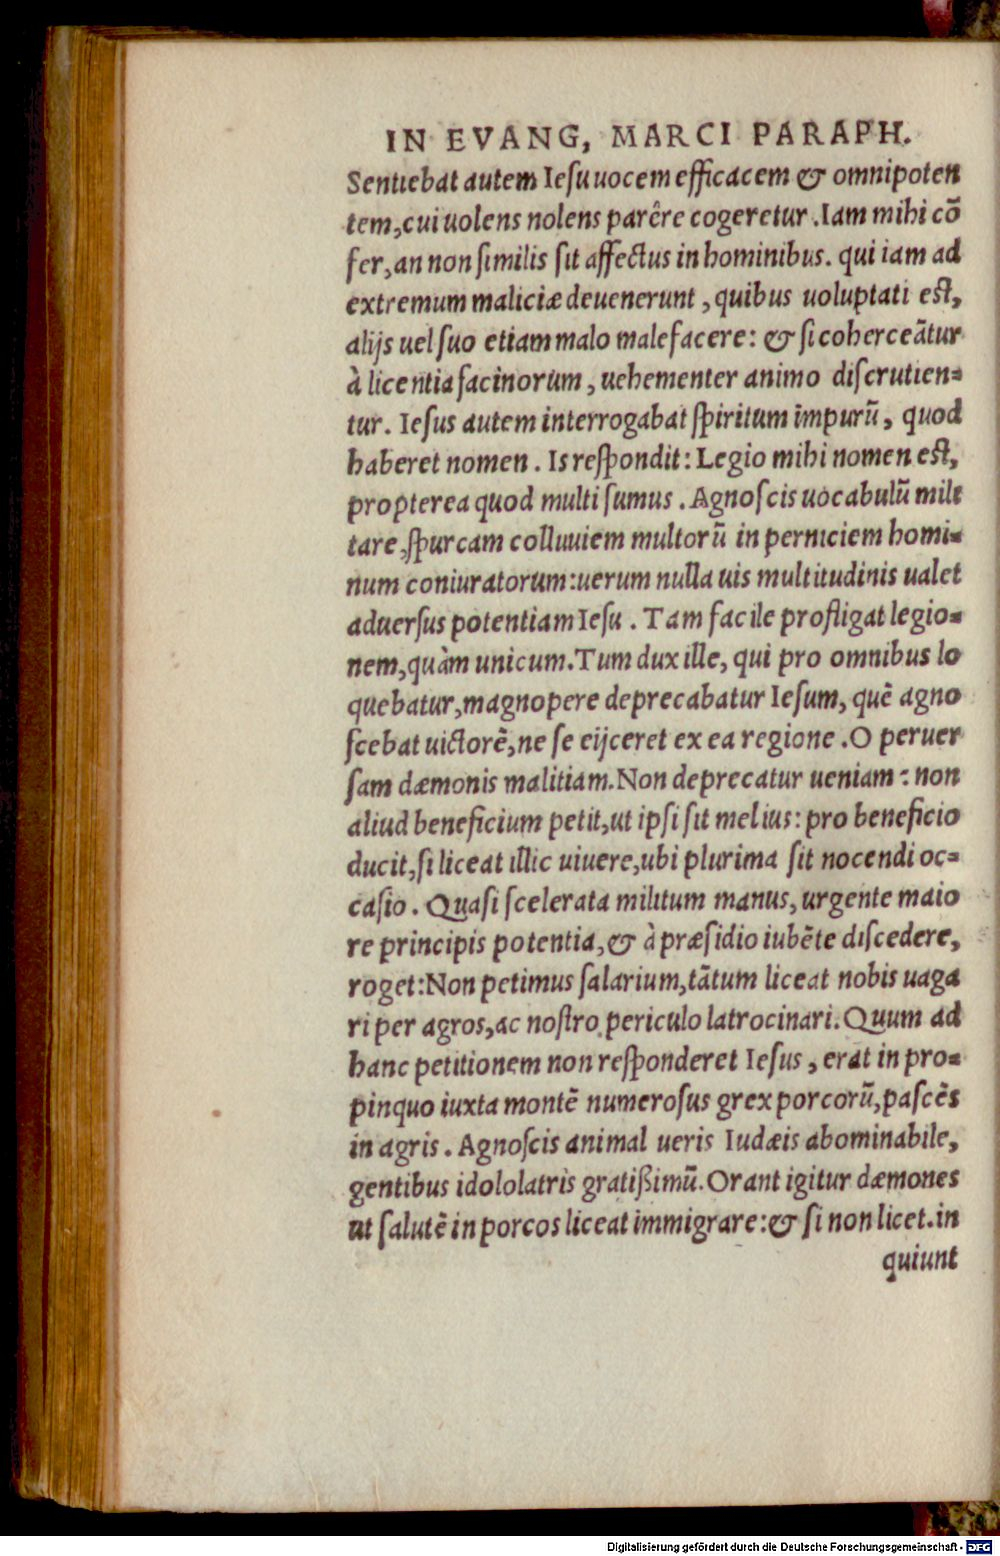 IN EVANG, MARCI PARAPH.
Sentiebat autem Ieſu uocem efficacem & omnipoten
tem, cui uolens nolens parêre cogeretur. Iam mihi cõ
fer, an non ſimilis ſit affectus in hominibus. qui iam ad
extremum maliciæ deuenerunt, quibus uoluptati eſt,
alijs uel ſuo etiam malo malefacere: & ſi coherceãtur
à licentia facinorum, uehementer animo diſcrutien=
tur. Ieſus autem interrogabat ſpiritum impurũ, quod
haberet nomen. Is reſpondit: Legio mihi nomen eſt,
propterea quod multi ſumus. Agnoſcis uocabulũ mili
tare, ſpurcam colluuiem multorũ in perniciem homi=
num coniuratorum: uerum nulla uis multitudinis ualet
aduerſus potentiam Ieſu. Tam facile profligat legio=
nem, quàm unicum. Tum dux ille, qui pro omnibus lo
quebatur, magnopere deprecabatur Ieſum, quẽ agno
ſcebat uictorẽ, ne ſe eijceret ex ea regione. O peruer
ſam dæmonis malitiam. Non deprecatur ueniam: non
aliud beneficium petit, ut ipſi ſit melius: pro beneficio
ducit, ſi liceat illic uiuere, ubi plurima ſit nocendi oc=
caſio. Quaſi ſcelerata militum manus, urgente maio
re principis potentia, & à præſidio iubẽte diſcedere,
roget: Non petimus ſalarium, tãtum liceat nobis uaga
ri per agros, ac noſtro periculo latrocinari. Quum ad
hanc petitionem non reſponderet Ieſus, erat in pro=
pinquo iuxta montẽ numeroſus grex porcorũ, paſcẽs
in agris. Agnoſcis animal ueris Iudæis abominabile,
gentibus idololatris gratißimũ. Orant igitur dæmones
ut ſalutẽ in porcos liceat immigrare: & ſi non licet. in
quiunt
Digitalisierung gefördert durch die Deutsche Forschungsgemeinschaft - DFG